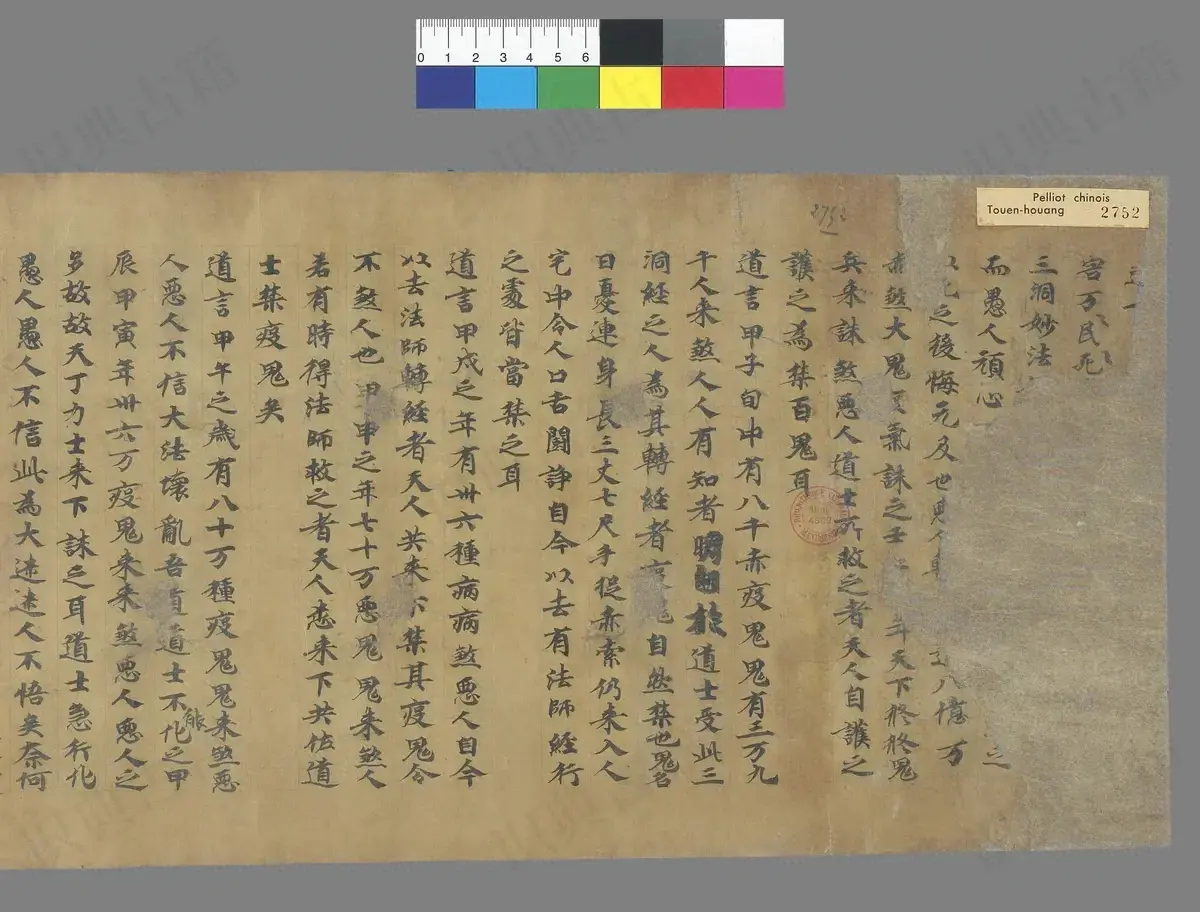 Pelliot chinois
Touen-houang 2752
2752
0 1 2 3 4 5 6
害万民死
三洞妙法
而愚人頑心 之
之後悔无及世 八億万
煞大鬼 氣誅之士 年天下終終鬼
兵来誅煞悪人道士所救之者天人自護之
護之為禁百鬼耳
道言甲子旬中有八千赤疫鬼鬼有三万九
千人来煞人人有知者 道士受此三
洞經之人為其轉經者 自然禁也鬼名
曰憂連身長三丈七尺手捉赤索仍来入人
宅中令人口舌鬪諍自今以去有法師經行
之處皆當禁之耳
道言甲戌之年有卅六種病病煞悪人自今
以去法師轉經者天人共来下禁其疫鬼令
不煞人也甲申之年七十万悪鬼鬼来煞人
若有時得法師救之者天人悉来下共佐道
士禁疫鬼矣
道言甲午之歲有八十万種疫鬼鬼来煞悪
人悪人不信大法壞亂吾 道士不能化之甲
辰甲寅年卅六万疫鬼来来煞悪人悪人之
多故故天丁力士来下誅之耳道士急行化
愚人愚人不信此為大迷迷人不悟矣奈何